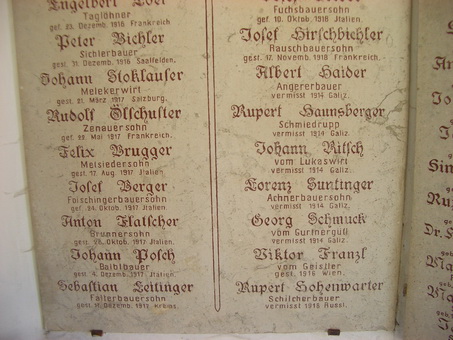 Engelbert
Taglöhner
gef. 23. Dezemb. 1916 Frankreich
Peter Bichler
Sichlerbauer
gest. 31. Dezemb. 1916 Saalfelden.
Johann Stoklauser
Melekerwirt
gest. 21. März 1917 Salzburg.
Rudolf Ölschuster
Zenauersohn
gef. 29. Mai 1917 Frankreich.
Felix Brugger
Meisiedersohn
gest. 17. Aug. 1917 Jtalien
Josef Berger
Faischingerbauersohn
gef. 24. Oktob. 1917 Jtalien.
Anton Flatscher
Brunnersohn
gest. 28. Oktob. 1917 Jtalien.
Johann Posch
gest. 4. Dezemb. 1917 Jtalien.
Sebastian Leitinger
Fallerbauersohn
gest. 11. Dezemb. 1917
Fuchsbauersohn
gef. 10. Oktob. 1918 Jtalien.
Josef Hirschbichler
Rauschbauersohn
gest. 17. Novemb. 1918 Frankreich.
Albert Haider
Angererbauer
vermisst 1914 Galiz.
Rupert Haunsberger
Schmiedrupp
vermisst 1914 Galiz.
Johann Ritsch
vom Lukaswirt
vermisst 1914 Galiz.
Lorenz Guntinger
Achnerbauersohn
vermisst 1914 Galiz.
Georg Schmuck
vom Gurtnergütl
vermisst 1914 Galiz.
Viktor Franzl
vom Geistler
gest. 1916 Wien.
Rupert Hohenwarter
Schilcherbauer
vermisst 1915 Russl.